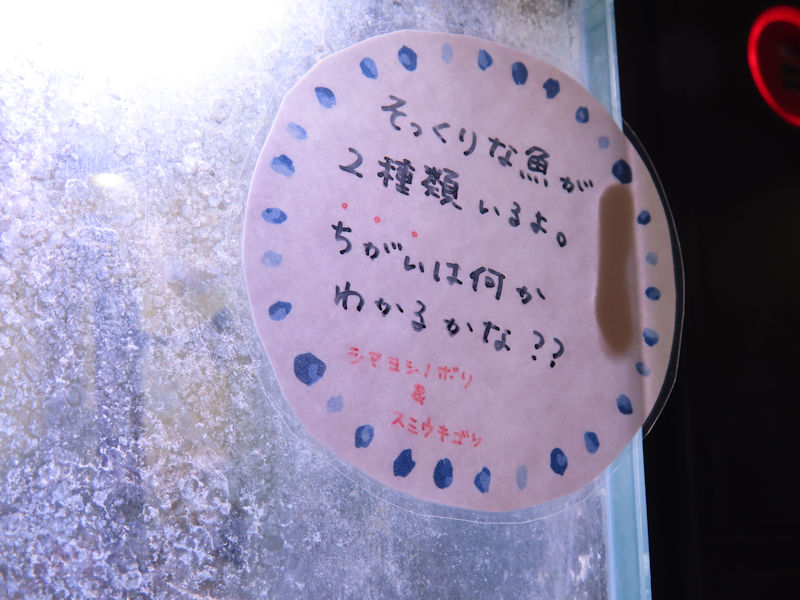 そっくりな魚が
2種類いるよ。
ちがいは何か
わかるかな??
シマヨシノボリ
&
スミウキゴリ